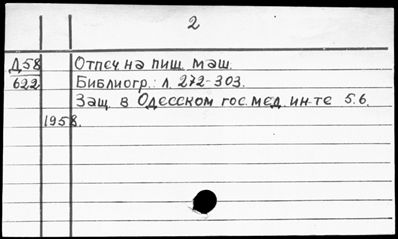 2
Д58 Отпеч на пиш. маш.
622 Библиогр.: л. 272-303.
Защ. в Одесском гос. мед. ин-те 5.6.
1958.